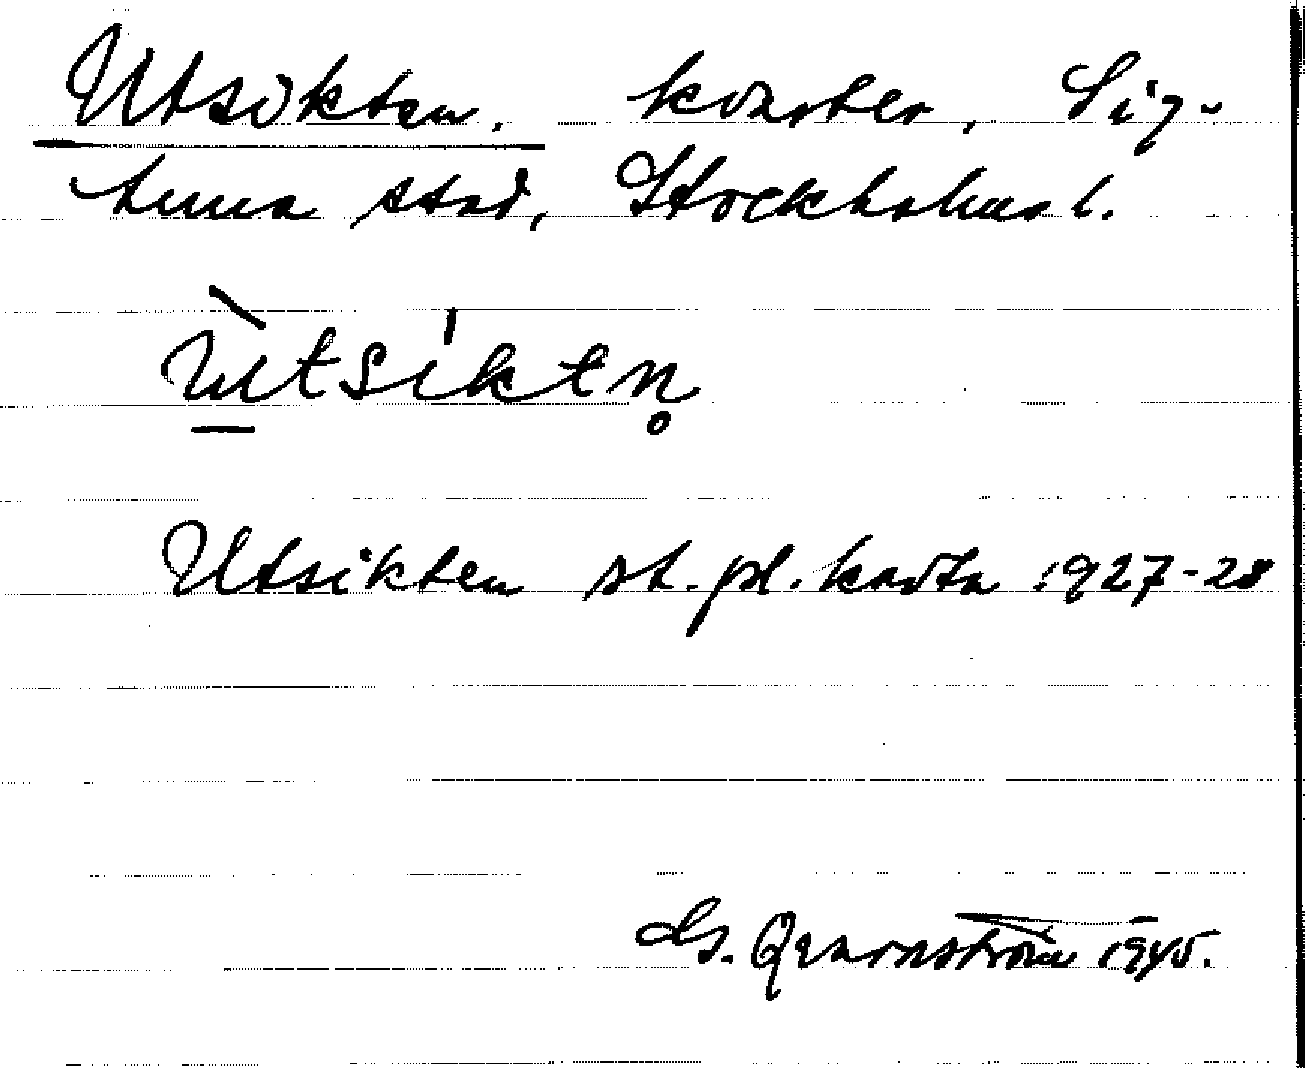 Utsikten, kvarter, Sig-
tuna stad, Stockholms l.
ùtsiktn̥
Utsikten st.pl.karta 1927-28
G. Qvarnström 1945.